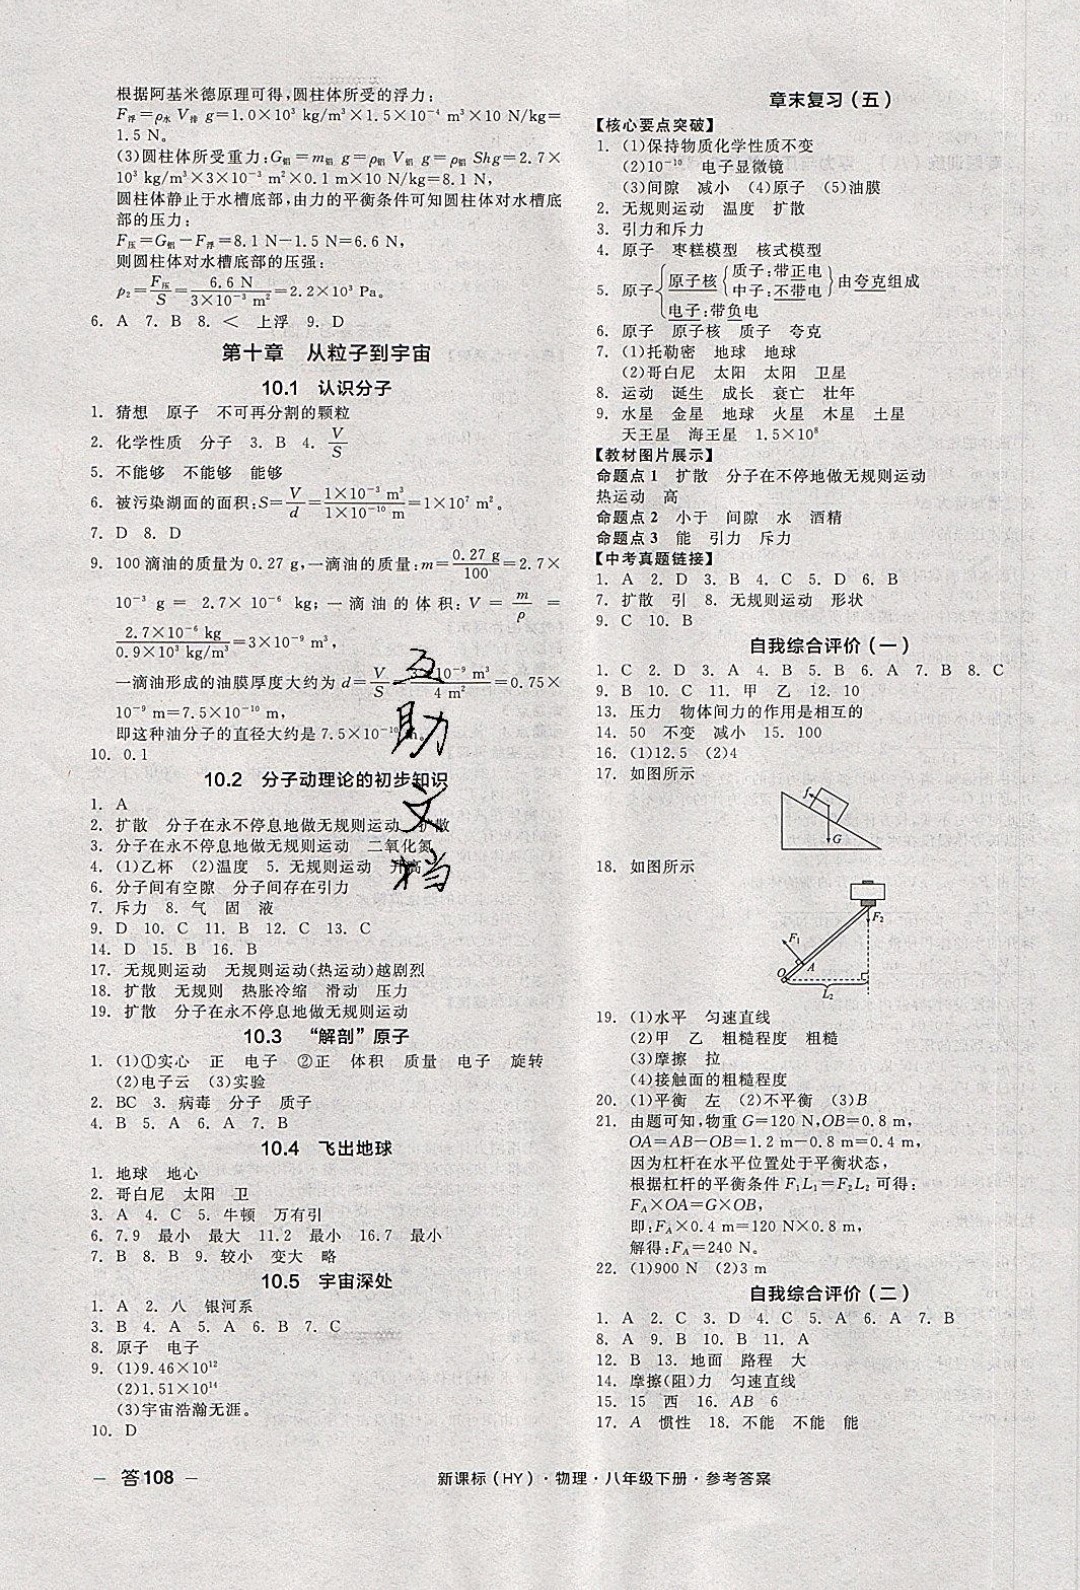 根据阿基米德原理可得,圆柱体所受的浮力:
F浮=ρ水 V排 g=1.0×10³ kg/m³×1.5×10⁻⁴ m³×10 N/kg=
1.5 N。
(3)圆柱体所受重力:G铝=m铝 g=ρ铝 V铝 g=ρ铝 Shg=2.7×
10³ kg/m³×3×10⁻³ m²×0.1 m×10 N/kg=8.1 N,
圆柱体静止于水槽底部,由力的平衡条件可知圆柱体对水槽底
部的压力:
F压=G铝-F浮=8.1 N-1.5 N=6.6 N,
则圆柱体对水槽底部的压强:
p₂=F压/S=6.6 N/3×10⁻³ m²=2.2×10³ Pa。
6. A 7. B 8. < 上浮 9. D
第十章 从粒子到宇宙
10.1 认识分子
1. 猜想 原子 不可再分割的颗粒
2. 化学性质 分子 3. B 4. V/S
5. 不能够 不能够 能够
6. 被污染湖面的面积:S=V/d=1×10⁻³ m³/1×10⁻¹⁰ m=1×10⁷ m²。
7. D 8. D
9. 100 滴油的质量为 0.27 g,一滴油的质量:m=0.27 g/100=2.7×
10⁻³ g = 2.7× 10⁻⁶ kg; 一滴油的体积: V = m/ρ =
2.7×10⁻⁶ kg/0.9×10³ kg/m³=3×10⁻⁹ m³,
一滴油形成的油膜厚度大约为 d=V/S=3×10⁻⁹ m³/4 m²=0.75×
10⁻⁹ m=7.5×10⁻¹⁰ m,
即这种油分子的直径大约是 7.5×10⁻¹⁰ m。
10. 0.1
10.2 分子动理论的初步知识
1. A
2. 扩散 分子在永不停息地做无规则运动 扩散
3. 分子在永不停息地做无规则运动 二氧化氮
4. (1)乙杯 (2)温度 5. 无规则运动 升高
6. 分子间有空隙 分子间存在引力
7. 斥力 8. 气 固 液
9. D 10. C 11. B 12. C 13. C
14. D 15. B 16. B
17. 无规则运动 无规则运动(热运动)越剧烈
18. 扩散 无规则 热胀冷缩 滑动 压力
19. 扩散 分子在永不停息地做无规则运动
10.3 “解剖”原子
1. (1)①实心 正 电子 ②正 体积 质量 电子 旋转
(2)电子云 (3)实验
2. BC 3. 病毒 分子 质子
4. B 5. A 6. A 7. B
10.4 飞出地球
1. 地球 地心
2. 哥白尼 太阳 卫
3. A 4. C 5. 牛顿 万有引
6. 7.9 最小 最大 11.2 最小 16.7 最小
7. B 8. B 9. 较小 变大 略
10.5 宇宙深处
1. A 2. 八 银河系
3. B 4. A 5. A 6. B 7. C
8. 原子 电子
9. (1)9.46×10¹²
(2)1.51×10¹⁴
(3)宇宙浩瀚无涯。
10. D
互助文档
章末复习(五)
【核心要点突破】
1. (1)保持物质化学性质不变
(2)10⁻¹⁰ 电子显微镜
(3)间隙 减小 (4)原子 (5)油膜
2. 无规则运动 温度 扩散
3. 引力和斥力
4. 原子 枣糕模型 核式模型
5. 原子{原子核{质子:带正电 中子:不带电}由夸克组成
电子:带负电
6. 原子 原子核 质子 夸克
7. (1)托勒密 地球 地球
(2)哥白尼 太阳 太阳 卫星
8. 运动 诞生 成长 衰亡 壮年
9. 水星 金星 地球 火星 木星 土星
天王星 海王星 1.5×10⁸
【教材图片展示】
命题点 1 扩散 分子在不停地做无规则运动
热运动 高
命题点 2 小于 间隙 水 酒精
命题点 3 能 引力 斥力
【中考真题链接】
1. A 2. D 3. B 4. C 5. D 6. B
7. 扩散 引 8. 无规则运动 形状
9. C 10. B
自我综合评价(一)
1. C 2. D 3. A 4. B 5. B 6. A 7. B 8. C
9. B 10. C 11. 甲 乙 12. 10
13. 压力 物体间力的作用是相互的
14. 50 不变 减小 15. 100
16. (1)12.5 (2)4
17. 如图所示
f
G
18. 如图所示
F₂
F₁
O A
L₂
19. (1)水平 匀速直线
(2)甲 乙 粗糙程度 粗糙
(3)摩擦 拉
(4)接触面的粗糙程度
20. (1)平衡 左 (2)不平衡 (3)B
21. 由题可知,物重 G=120 N,OB=0.8 m,
OA=AB-OB=1.2 m-0.8 m=0.4 m,
因为杠杆在水平位置处于平衡状态,
根据杠杆的平衡条件 F₁L₁=F₂L₂ 可得:
F_A×OA=G×OB,
即:F_A×0.4 m=120 N×0.8 m,
解得:F_A=240 N。
22. (1)900 N (2)3 m
自我综合评价(二)
1. A 2. C 3. D 4. C 5. A 6. A 7. B
8. A 9. B 10. B 11. A
12. B 13. 地面 路程 大
14. 摩擦(阻)力 匀速直线
15. 15 西 16. AB 6
17. A 惯性 18. 不能 不能 能
答108
新课标(HY)·物理·八年级下册·参考答案